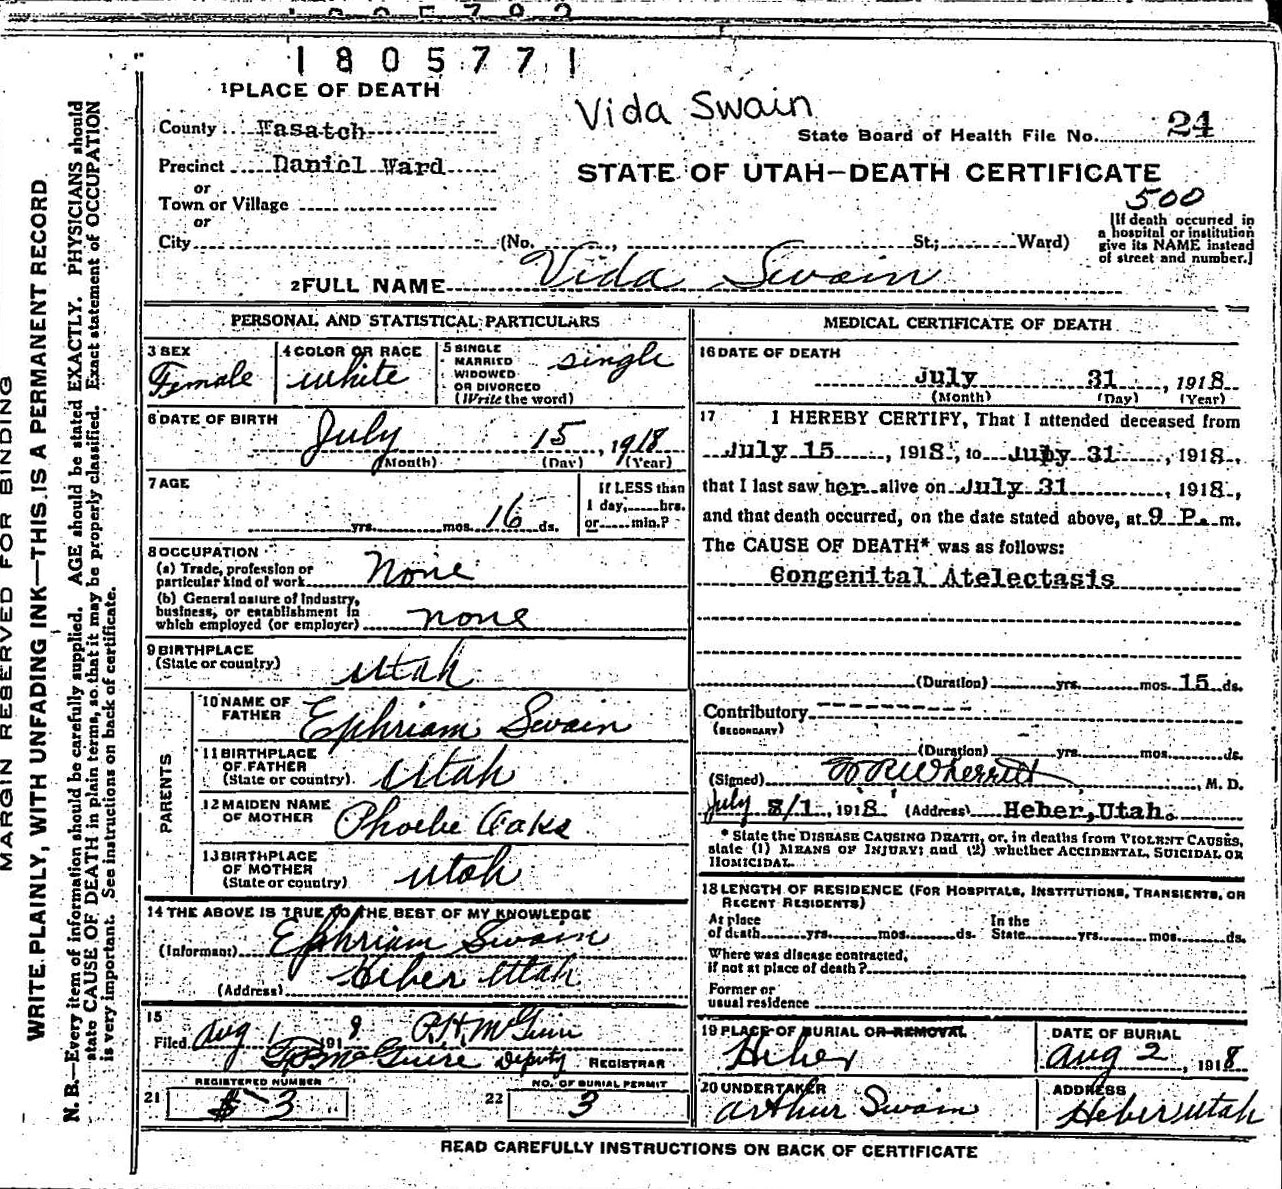 1805771
1PLACE OF DEATH
Vida Swain
County Wasatch
State Board of Health File No. 24
Precinct Daniel Ward
STATE OF UTAH—DEATH CERTIFICATE
or
500
Town or Village
or
City (No. , St.; Ward)
[If death occurred in
a hospital or institution
give its NAME instead
of street and number.]
2FULL NAME Vida Swain
PERSONAL AND STATISTICAL PARTICULARS
3 SEX
Female
4 COLOR OR RACE
white
5 SINGLE
MARRIED
WIDOWED
OR DIVORCED
(Write the word)
single
6 DATE OF BIRTH
July 15, 1918
(Month) (Day) (Year)
7 AGE
yrs. mos. 16 ds.
If LESS than
1 day, hrs.
or min.?
8 OCCUPATION
(a) Trade, profession or
particular kind of work None
(b) General nature of industry,
business, or establishment in
which employed (or employer) none
9 BIRTHPLACE
(State or country) Utah
PARENTS
10 NAME OF
FATHER Ephriam Swain
11 BIRTHPLACE
OF FATHER
(State or country) Utah
12 MAIDEN NAME
OF MOTHER Phoebe Oaks
13 BIRTHPLACE
OF MOTHER
(State or country) Utah
14 THE ABOVE IS TRUE TO THE BEST OF MY KNOWLEDGE
(Informant) Ephriam Swain
(Address) Heber Utah
15
Filed Aug 1 191 8
Deputy REGISTRAR
REGISTERED NUMBER
21 3
NO. OF BURIAL PERMIT
22 3
MEDICAL CERTIFICATE OF DEATH
16 DATE OF DEATH
July 31, 1918
(Month) (Day) (Year)
17 I HEREBY CERTIFY, That I attended deceased from
July 15, 1918, to July 31, 1918,
that I last saw her alive on July 31, 1918,
and that death occurred, on the date stated above, at 9 P. m.
The CAUSE OF DEATH* was as follows:
Congenital Atelectasis
(Duration) yrs. mos. 15 ds.
Contributory
(SECONDARY)
(Duration) yrs. mos. ds.
(Signed) W R Wherritt, M. D.
July 1918 (Address) Heber, Utah.
* State the DISEASE CAUSING DEATH, or, in deaths from VIOLENT CAUSES,
state (1) MEANS OF INJURY; and (2) whether ACCIDENTAL, SUICIDAL OR
HOMICIDAL.
18 LENGTH OF RESIDENCE (FOR HOSPITALS, INSTITUTIONS, TRANSIENTS, OR
RECENT RESIDENTS)
At place
of death yrs. mos. ds.
In the
State yrs. mos. ds.
Where was disease contracted,
if not at place of death?
Former or
usual residence
19 PLACE OF BURIAL OR REMOVAL
Heber
DATE OF BURIAL
Aug 2, 1918
20 UNDERTAKER
Arthur Swain
ADDRESS
Heber Utah
READ CAREFULLY INSTRUCTIONS ON BACK OF CERTIFICATE
MARGIN RESERVED FOR BINDING
WRITE PLAINLY, WITH UNFADING INK—THIS IS A PERMANENT RECORD
N. B.—Every item of information should be carefully supplied. AGE should be stated EXACTLY. PHYSICIANS should
state CAUSE OF DEATH in plain terms, so that it may be properly classified. Exact statement of OCCUPATION
is very important. See instructions on back of certificate.